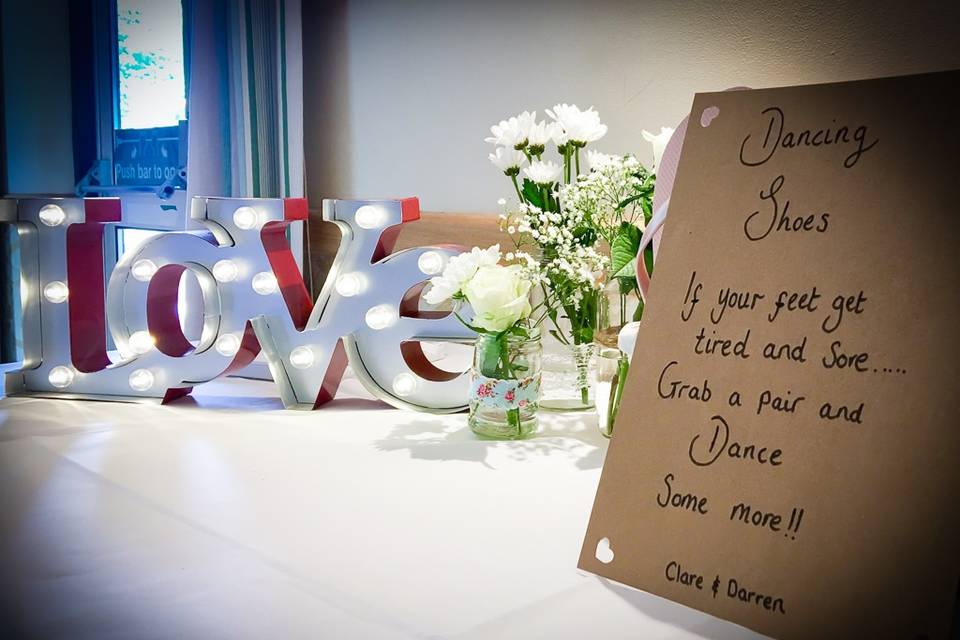 Push bar to op
Love
Dancing
Shoes
If your feet get
tired and sore.....
Grab a pair and
Dance
Some more!!
Clare & Darren